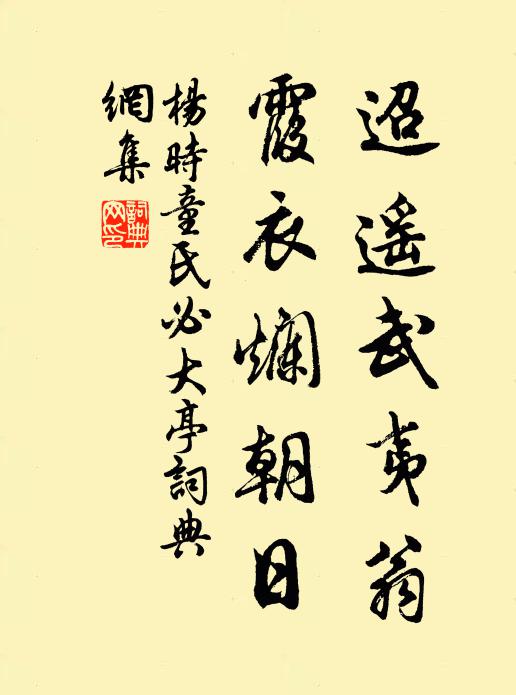 迢遥武夷翁
霞衣爛朝日
楊時童氏必大亭詞典
網集
詞典
网印